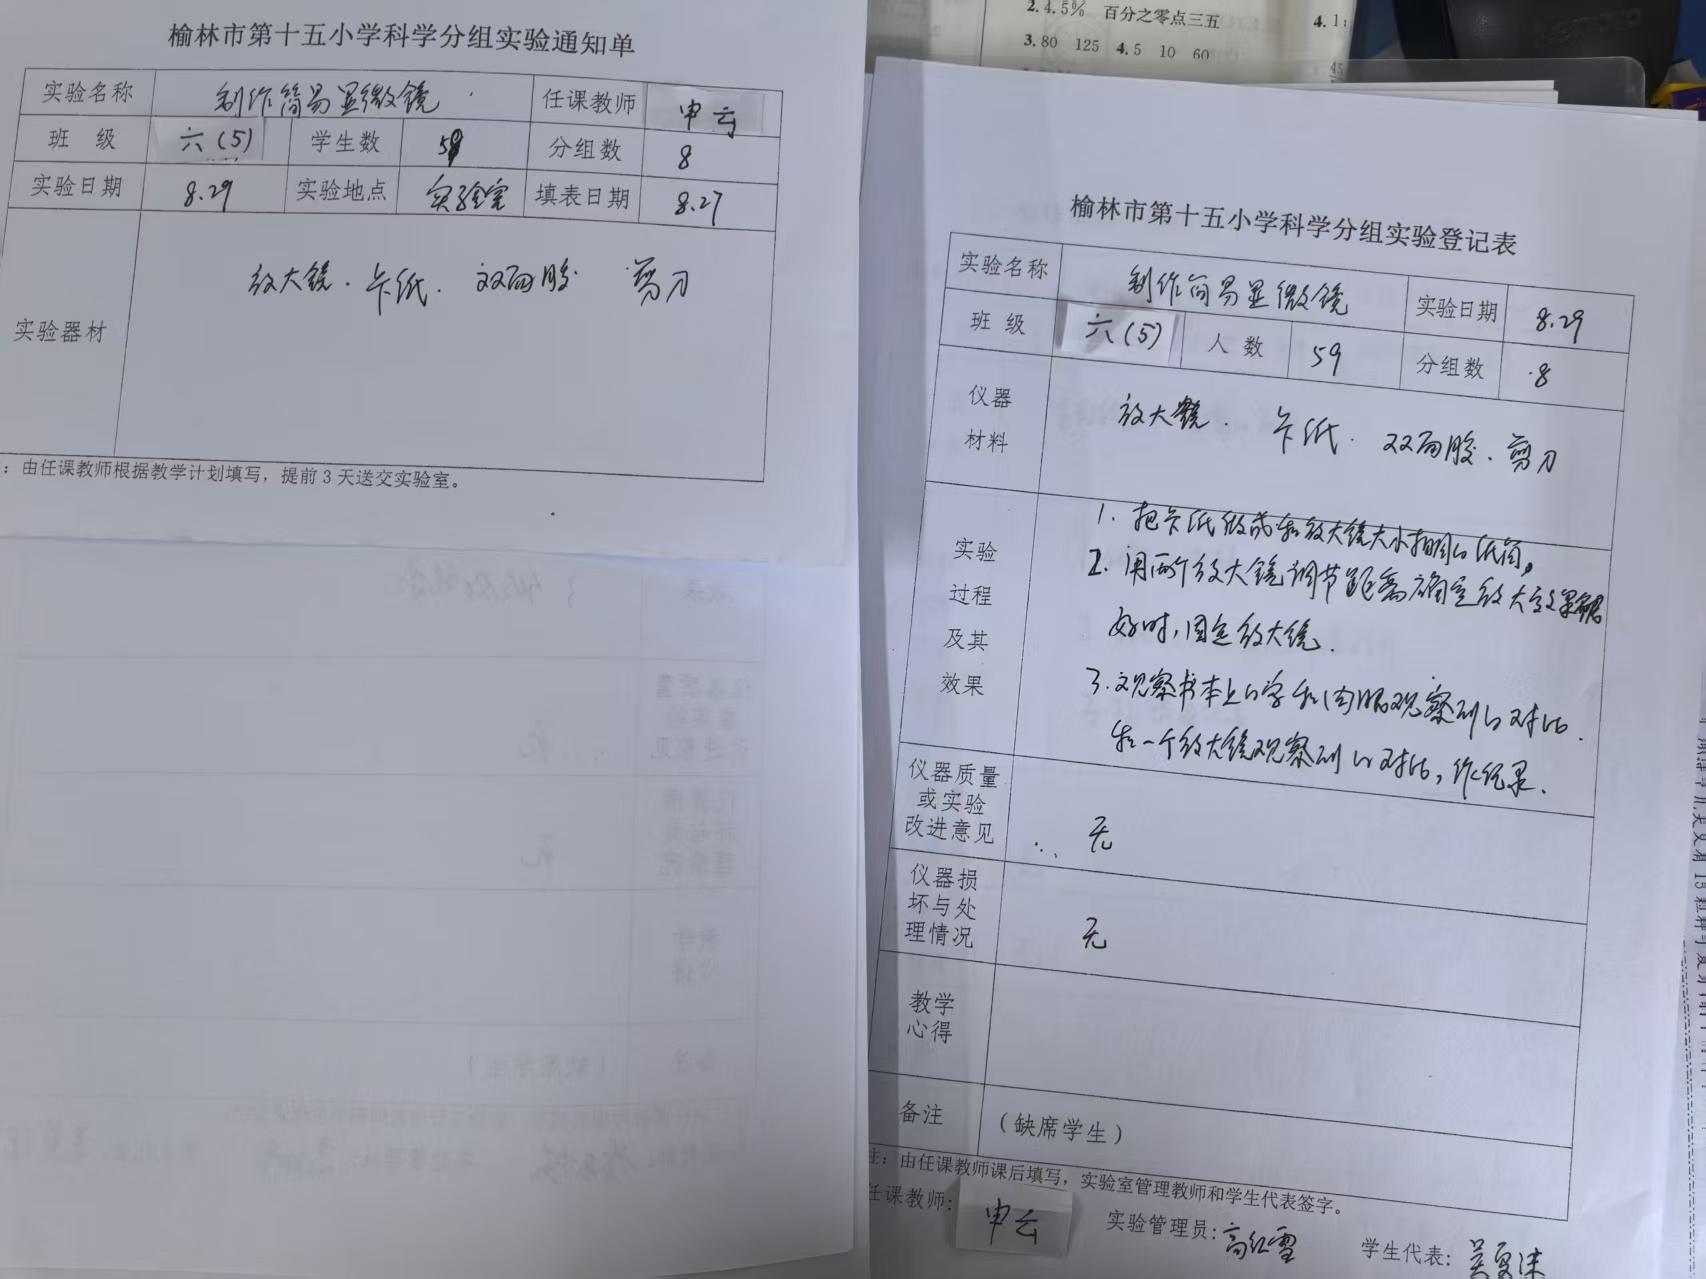 榆林市第十五小学科学分组实验通知单
实验名称 制作简易显微镜 任课教师 申云
班 级 六(5) 学生数 59 分组数 8
实验日期 8.29 实验地点 实验室 填表日期 8.27
实验器材 放大镜. 卡纸. 双面胶 剪刀
:由任课教师根据教学计划填写,提前3天送交实验室。
2.4.5% 百分之零点三五
3.80 125 4.5 10 60
4.1:
45
榆林市第十五小学科学分组实验登记表
实验名称 制作简易显微镜 实验日期 8.29
班 级 六(5) 人 数 59 分组数 8
仪器材料 放大镜. 卡纸. 双面胶. 剪刀
实验过程及其效果
1. 把卡纸做成和放大镜大小相同的纸筒。
2. 用两个放大镜调节距离确定放大效果最
好时,固定放大镜.
3. 观察书本上的字和肉眼观察到的对比.
和一个放大镜观察到的对比,作纪录.
仪器质量或实验改进意见 无
仪器损坏与处理情况 无
教学心得
备注 (缺席学生)
注:由任课教师课后填写,实验室管理教师和学生代表签字。
任课教师: 申云 实验管理员: 高红雪 学生代表: 吴